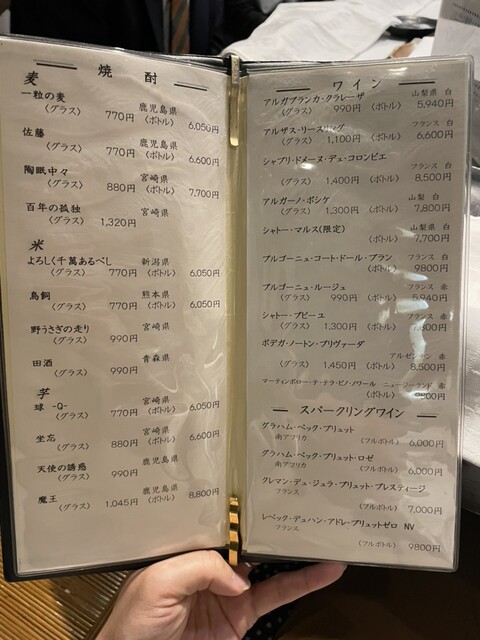 焼酎
麦
一粒の麦 鹿児島県
(グラス) 770円 (ボトル) 6,050円
佐藤 鹿児島県
(グラス) 770円 (ボトル) 6,600円
陶眠中々 宮崎県
(グラス) 880円 (ボトル) 7,700円
百年の孤独 宮崎県
(グラス) 1,320円
米
よろしく千萬あるべし 新潟県
(グラス) 770円 (ボトル) 6,050円
鳥飼 熊本県
(グラス) 770円 (ボトル) 6,050円
野うさぎの走り 宮崎県
(グラス) 990円
田酒 青森県
(グラス) 990円
芋
球 -Q- 宮崎県
(グラス) 770円 (ボトル) 6,050円
坐忘 宮崎県
(グラス) 880円 (ボトル) 6,600円
天使の誘惑 鹿児島県
(グラス) 990円
魔王 鹿児島県
(グラス) 1,045円 (ボトル) 8,800円
ワイン
アルガブランカ・クラレーザ 山梨県 白
(グラス) 990円 (ボトル) 5,940円
アルザス・リースリング フランス 白
(グラス) 1,100円 (ボトル) 6,600円
シャブリ・ドメーヌ・デュ・コロンビエ
フランス 白
(グラス) 1,400円 (ボトル) 8,500円
アルガーノ・ボシケ 山梨 白
(グラス) 1,300円 (ボトル) 7,800円
シャトー・マルス(限定) 山梨県 白
(ボトル) 7,700円
ブルゴーニュ・コート・ドール・ブラン フランス 白
(ボトル) 9800円
ブルゴーニュ・ルージュ フランス 赤
(グラス) 990円 (ボトル) 5,940円
シャトー・プピーユ フランス 赤
(グラス) 1,300円 (ボトル) 7,800円
ボデガ・ノートン・プリヴァーダ
アルゼンチン 赤
(グラス) 1,450円 (ボトル) 8,500円
マーティンボロー・テ・テラ・ピノ・ノワール ニュージーランド 赤
(ボトル)
スパークリングワイン
グラハム・ベック・ブリュット
南アフリカ (フルボトル) 6,000円
グラハム・ベック・ブリュット・ロゼ
南アフリカ (フルボトル) 6,000円
クレマン・デュ・ジュラ・ブリュット・プレスティージ
フランス
(フルボトル) 7,000円
レベック・デュハン・アドレ・ブリュットゼロ NV
フランス
(フルボトル) 9800円